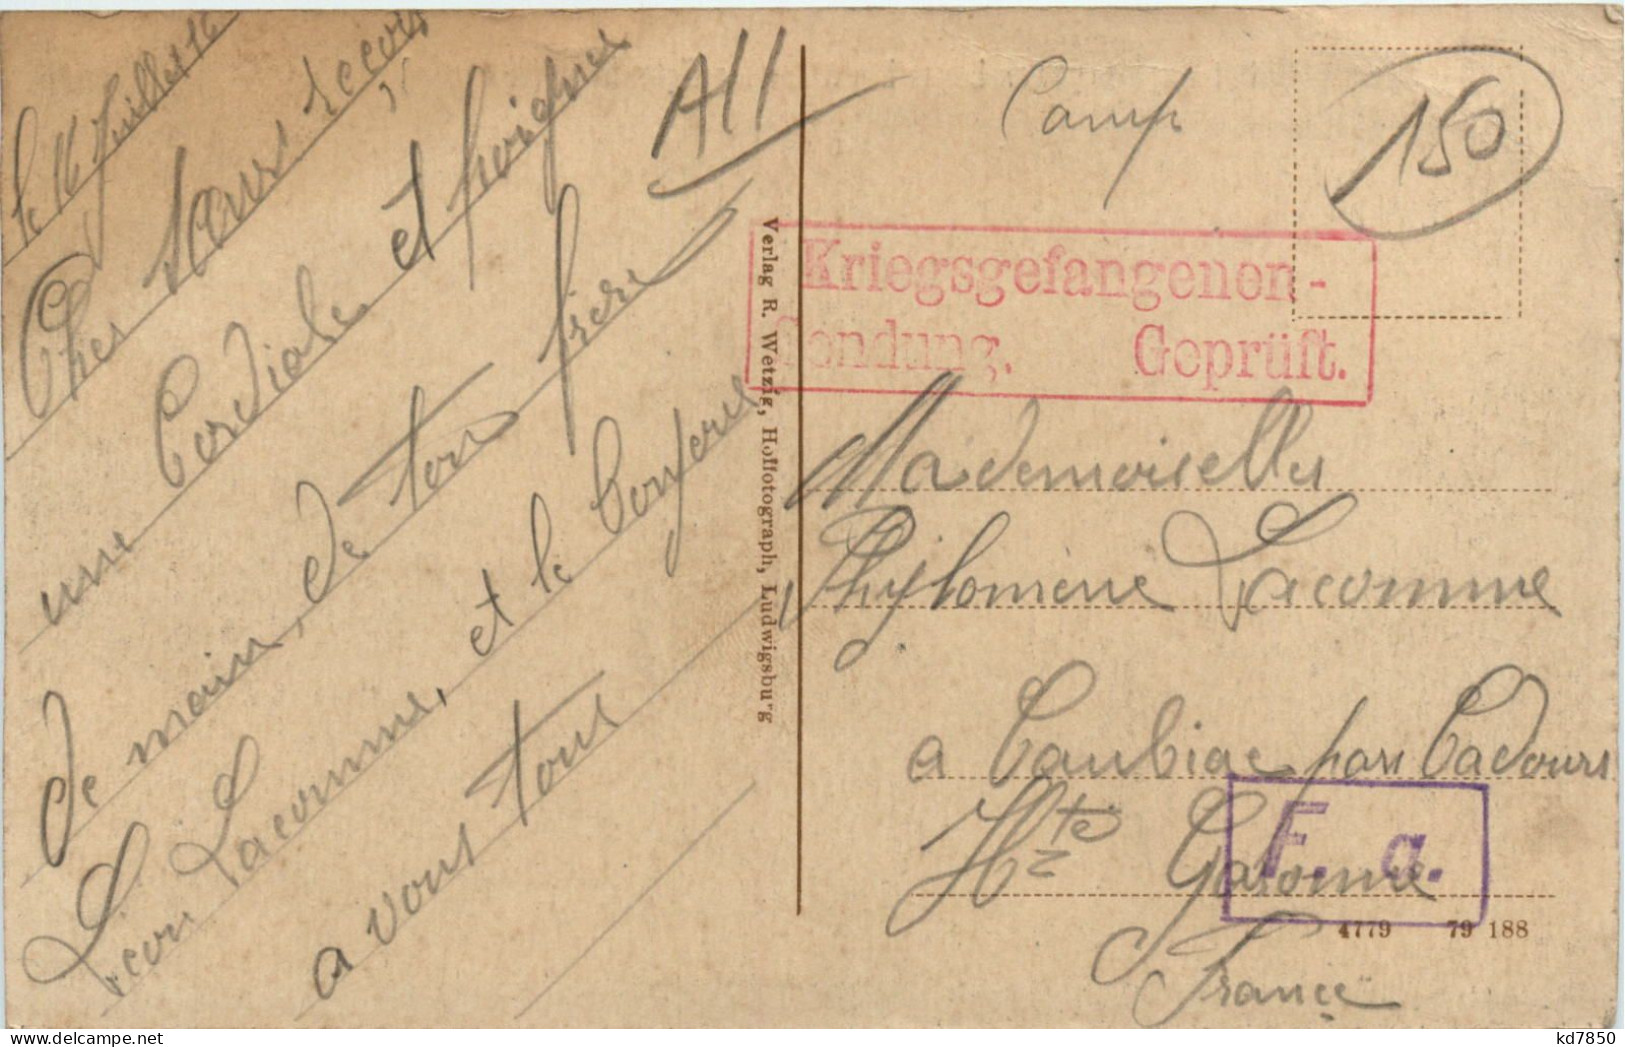 le 16 Juillet 16
Cher sœur recois
une Cordiale et poigné
de main, de ton frère
Léon Lacomme, et le bonjour
a vous tous
A11
Verlag R. Wetzig, Hoffotograph, Ludwigsburg
Camp
150
Kriegsgefangenen-
Sendung. Geprüft.
Mademoiselles
Phylomène Lacomme
a Caubiac par Cadours
Hte Garonne
F. a.
4779 79 188
France
kd7850